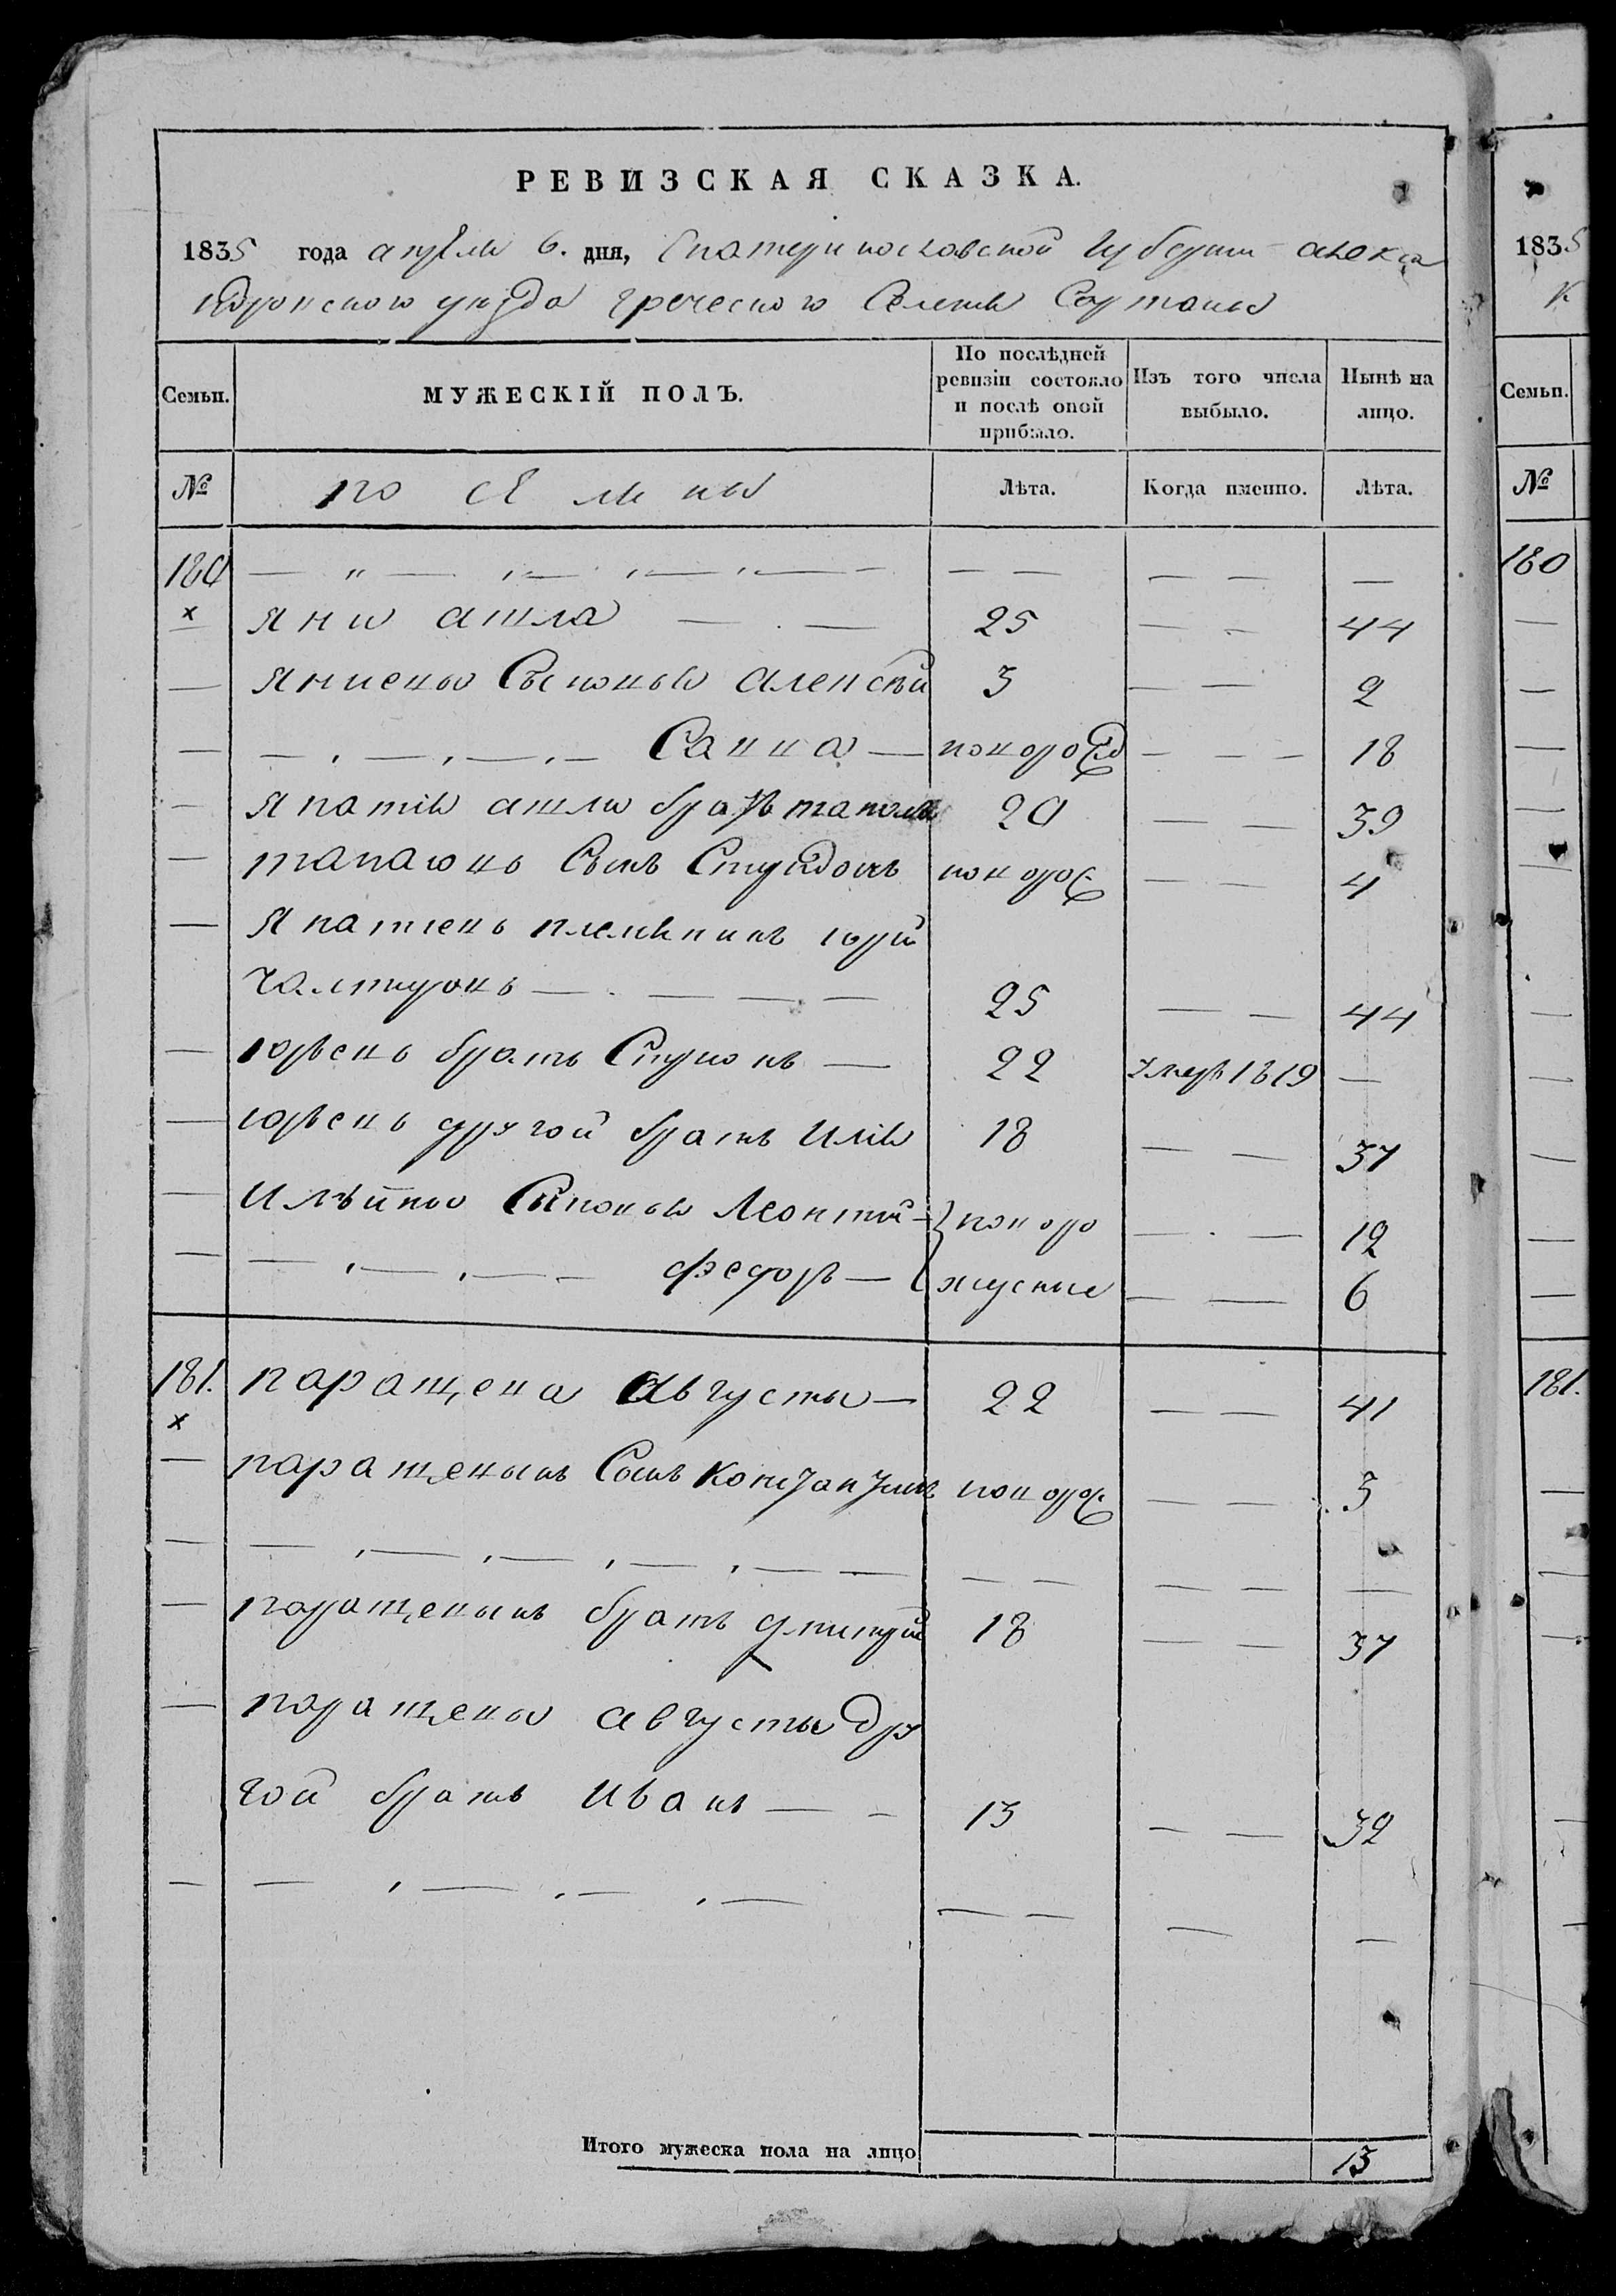 РЕВИЗСКАЯ СКАЗКА.
1835 года апреля 6. дня, Екатеринославской Губернии алекса
ндровского уезда греческого Селения Сартаны
Семьи. МУЖЕСКІЙ ПОЛЪ. По послѣдней ревизіи состояло и послѣ оной прибыло. Изъ того числа выбыло. Нынѣ на лицо.
№ Лѣта. Когда именно. Лѣта.
180
яни ашла 25 44
яниены Сыновья алексей 3 2
Савва новорожд 18
япатія ашлы братъ 20 39
Сынъ Спиридонъ новорож 4
племяникъ юрй
25 44
юрьенъ братъ 22 умеръ 1819
юрьенъ другой братъ Илія 18 37
Ильины Сыновья Леонтий новоро 12
федоръ жденые 6
181. паращева Августы 22 41
паращевынъ Сынъ Константинъ новорож 3
паращевынъ братъ дмитрий 18 37
паращевы августы дру
гой братъ Иванъ 13 32
Итого мужеска пола на лицо 13
1835
Семьи.
№
180
181.